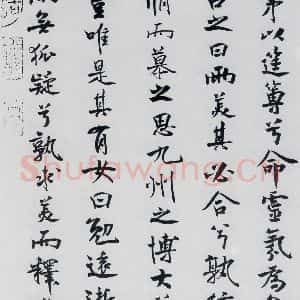 茅以筳篿兮命靈氛為
占之曰兩美其必合兮孰信
脩而慕之思九州之博大
豈唯是其有女曰勉遠逝
無狐疑兮孰求美而釋
Shufawang.cn